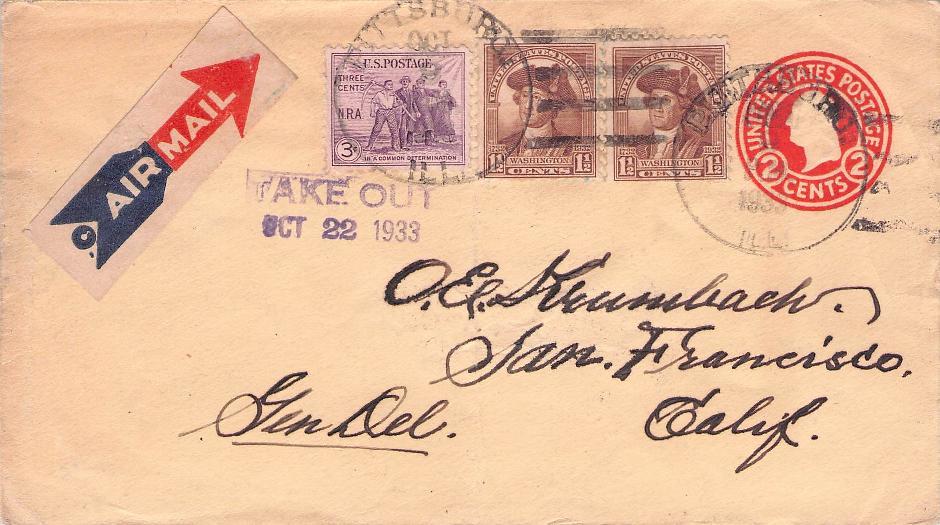 AIR MAIL
PITTSBURG
OCT
ILL.
U.S. POSTAGE
THREE CENTS
N.R.A.
3¢
IN A COMMON DETERMINATION
UNITED STATES POSTAGE
1732 1932
WASHINGTON
1½ CENTS 1½
UNITED STATES POSTAGE
1732 1932
WASHINGTON
1½ CENTS 1½
UNITED STATES POSTAGE
2 CENTS 2
1933
ILL.
TAKE OUT
OCT 22 1933
O. E. Krumbach.
San. Francisco.
Gen Del. Calif.